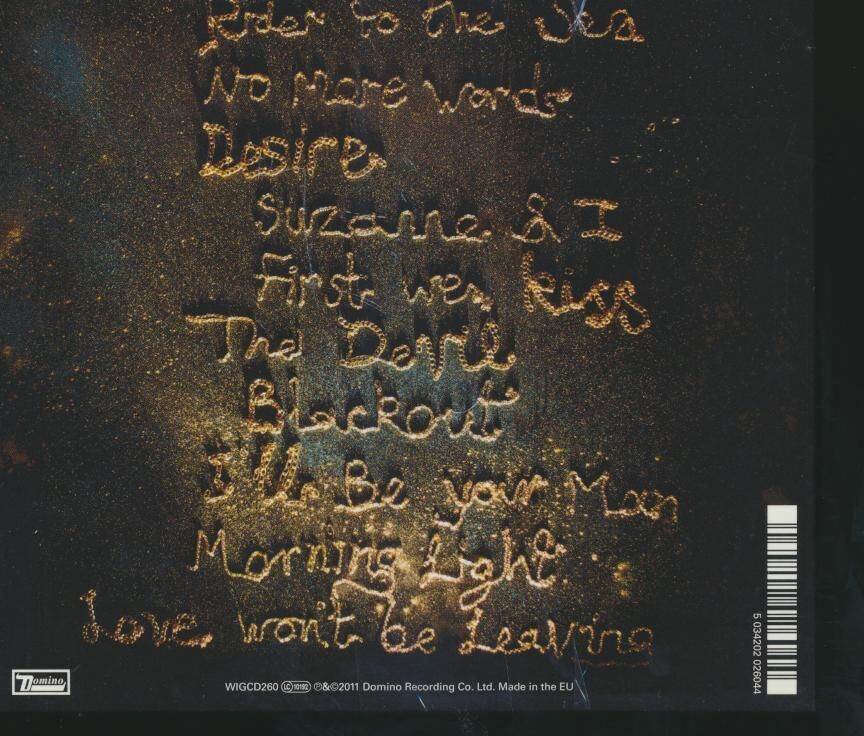 Rider to the Sea
No More Words
Desire
Suzanne & I
First we kiss
The Devil
Blackout
I'll Be your Man
Morning Light
Love won't be Leaving
Domino
WIGCD260 LC10192 ℗&©2011 Domino Recording Co. Ltd. Made in the EU
5 034202 026044